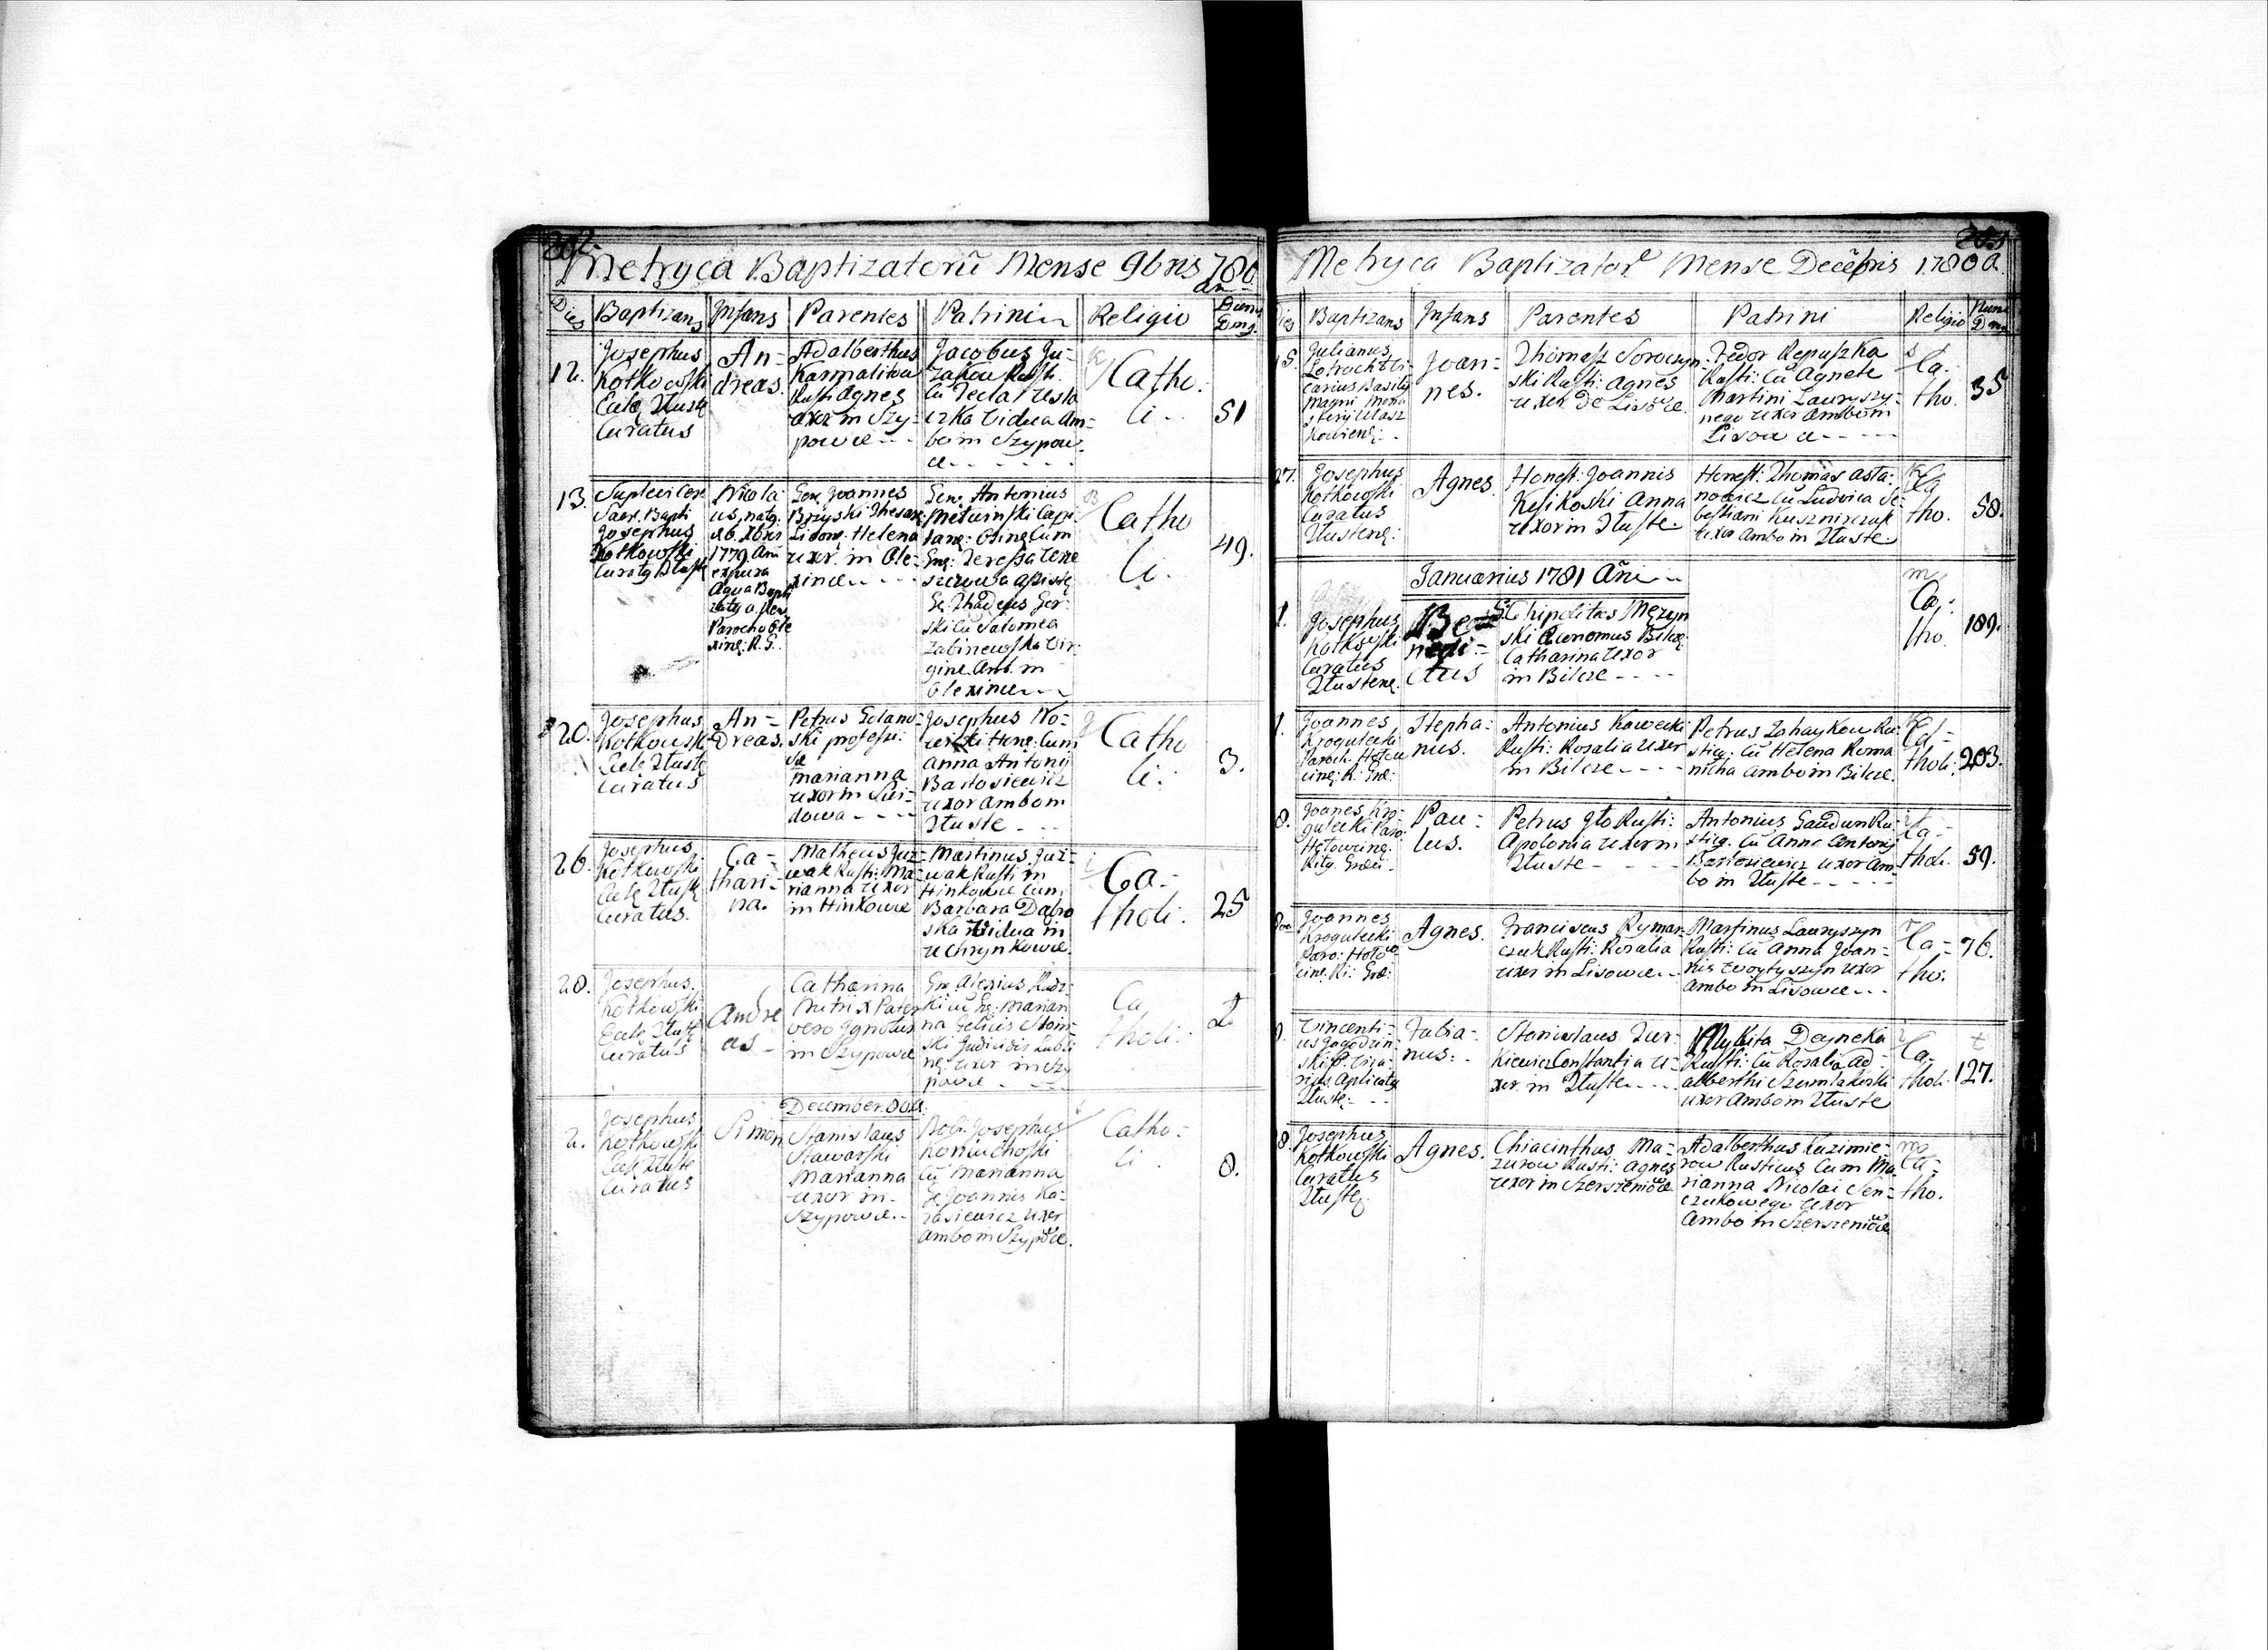 202.
Metryca Baptizatorũ Mense 9bris 780
an
Dies Baptizans Infans Parentes Patrini Religio Num Dom.
12.
Josephus
Kotkowski
Ecclę Ttustę
Curatus
An-
dreas.
Adalberthus
Karmalitow
Rusti Agnes
uxor in Szy-
powce
Jacobus Ju-
zakow Rusti.
Cũ Tecla
Vidua Am-
bo in Szypow-
ce
Catho.
li..
51
13.
Suplevi Cere.
Sacr. Bapti
Josephus
Kotkowski
Curatq Ttustę
Nicola
us, natq.
1779. Ani
ex pura
Aqua Bapti
zatq a
Parocho Ole
xinę: R. G.
Gen. Joannes
Brzyski Thesaur
Helena
uxor. in Ole-
xince
Gene. Antonius
Mitwinski Capi-
Cum
Gnę: Teressa
Ge. Thadeus Ger-
ski cũ Salomea
Zabinewska Vir-
gine Amb. in
Olexince
Catho
li.
49.
20.
Josephus
Kotkowski
Ecclę Ttustę
Curatus
An-
dreas.
Petrus
ski profess:
Marianna
uxor in Swi-
dowa
Josephus No-
Hone: Cum
Anna Antonij
Bartosiewicz
uxor ambo in
Ttuste
Catho
li.
3.
26.
Josephus
Kotkowski
Eccłę Ttustę
Curatus.
Ca-
thari-
na.
Matheus Juz-
wak Rusti: Ma-
rianna Uxor
in Hinkowce
Martinus Juz-
wak Rusti in
Hinkowce Cum
Barbara Dabro
ska Vidua in
Uchrynkowce.
Ca-
tholi.
25
28.
Josephus.
Kotkowski
Ecclę Ttustę
Curatus
Andre
as -
Catharina
Pater
vero Ignotus
in Szypowce
Gn. Alexius
Marian
na Felicis
ski
uxor in Szy
powce
Ca
tholi:
2
December. 80 a.
2.
Josephus
Kotkowski
Ecclę Ttustę
Curatus
Simon
Stanislaus
Stawarski
Marianna
uxor in
Szypowce.
Nobi. Josephus
Koniuchoski
Cũ Marianna
G. Joannis Ka-
rasiewicz uxor
ambo in Szypowce.
Catho-
li.
8.
203
Metryca Baptizator Mense Decēbris 1780 a.
Dies Baptizans Infans Parentes Patrini Religio Num Dom
15.
Julianus
Basily
Magni Mona
sterij Ulasz
kowienę:
Joan-
nes.
Thomasz Soroczyn-
ski Rusti: Agnes
uxor de Lisowce.
Fedor Repuszka
Rusti: Cũ Agnete
Martini Lauryszy-
nego uxor Ambo in
Lisowce
Ca-
tho.
35
27.
Josephus
Kotkowski
Curatus
Ttustenę:
Agnes.
Honest: Joannis
Kesikoski Anna
uxor in Ttuste.
Honest: Thomas Asta-
nowicz Cũ Ludvica Se-
bestiani Kusznirczuk
uxor Ambo in Ttuste.
Ca
tho.
58.
Januarius 1781 Añi
1.
Josephus
Kotkowski
Curatus
Ttustenę.
Be-
nedi-
ctus
G. Chipolitus Męzyn
ski Œconomus Bilcę:
Catharina Uxor
in Bilcze
m
Ca-
tho
189.
1.
Joannes
Krogulecki
Paroch: Hołow
cinę: R. Grę:
Stepha-
nus.
Antonius Kawecki
Rusti: Rosalia uxor
in Bilcze
Petrus Zahaykow Ru-
stiq. Cũ Helena Roma
nicha ambo in Bilcze.
Ca-
tholi.
203.
8.
Joanes Kro-
gulecki Paro:
Hołowcinę.
Ritq. Grœci
Pau-
lus.
Petrus Gło Rusti:
Apolonia Uxor in
Ttuste
Antonius Gaudun Ru-
stiq. Cũ Anna Antonij
Bartosiewicz uxor Am-
bo in Ttuste
Ca-
tholi.
59.
Joannes
Krogulecki
Paro: Hoło
cinę. Ri: Grę:
Agnes.
Franciscus Rymar-
czuk Rusti: Rosalia
uxor in Lisowce.
Martinus Lauryszyn
Rusti: Cũ Anna Joan-
nis Woytyszyn uxor
ambo in Lisowce
Ca-
tho.
76.
Vincenti-
us Gogodzin
ski
Aplicatq
Ttustę:
Fabia-
nus.
Stanislaus Jur-
kiewicz Constantia U-
xor. in Ttuste
Mykita Deyneka
Rusti: Cũ Rosalia Ad-
alberthi Szumlakoski
uxor Ambo in Ttuste
Ca-
tholi.
127.
18.
Josephus
Kotkowski
Curatus
Ttustę
Agnes.
Chiacinthus Ma-
zurow Rusti: Agnes
uxor in Szerszeniowce.
Adalberthus Kazimie-
row Rusticus Cum Ma
rianna Nicolai Sen-
czukowego Uxor
Ambo in Szerszeniowce
m
Ca-
tho.